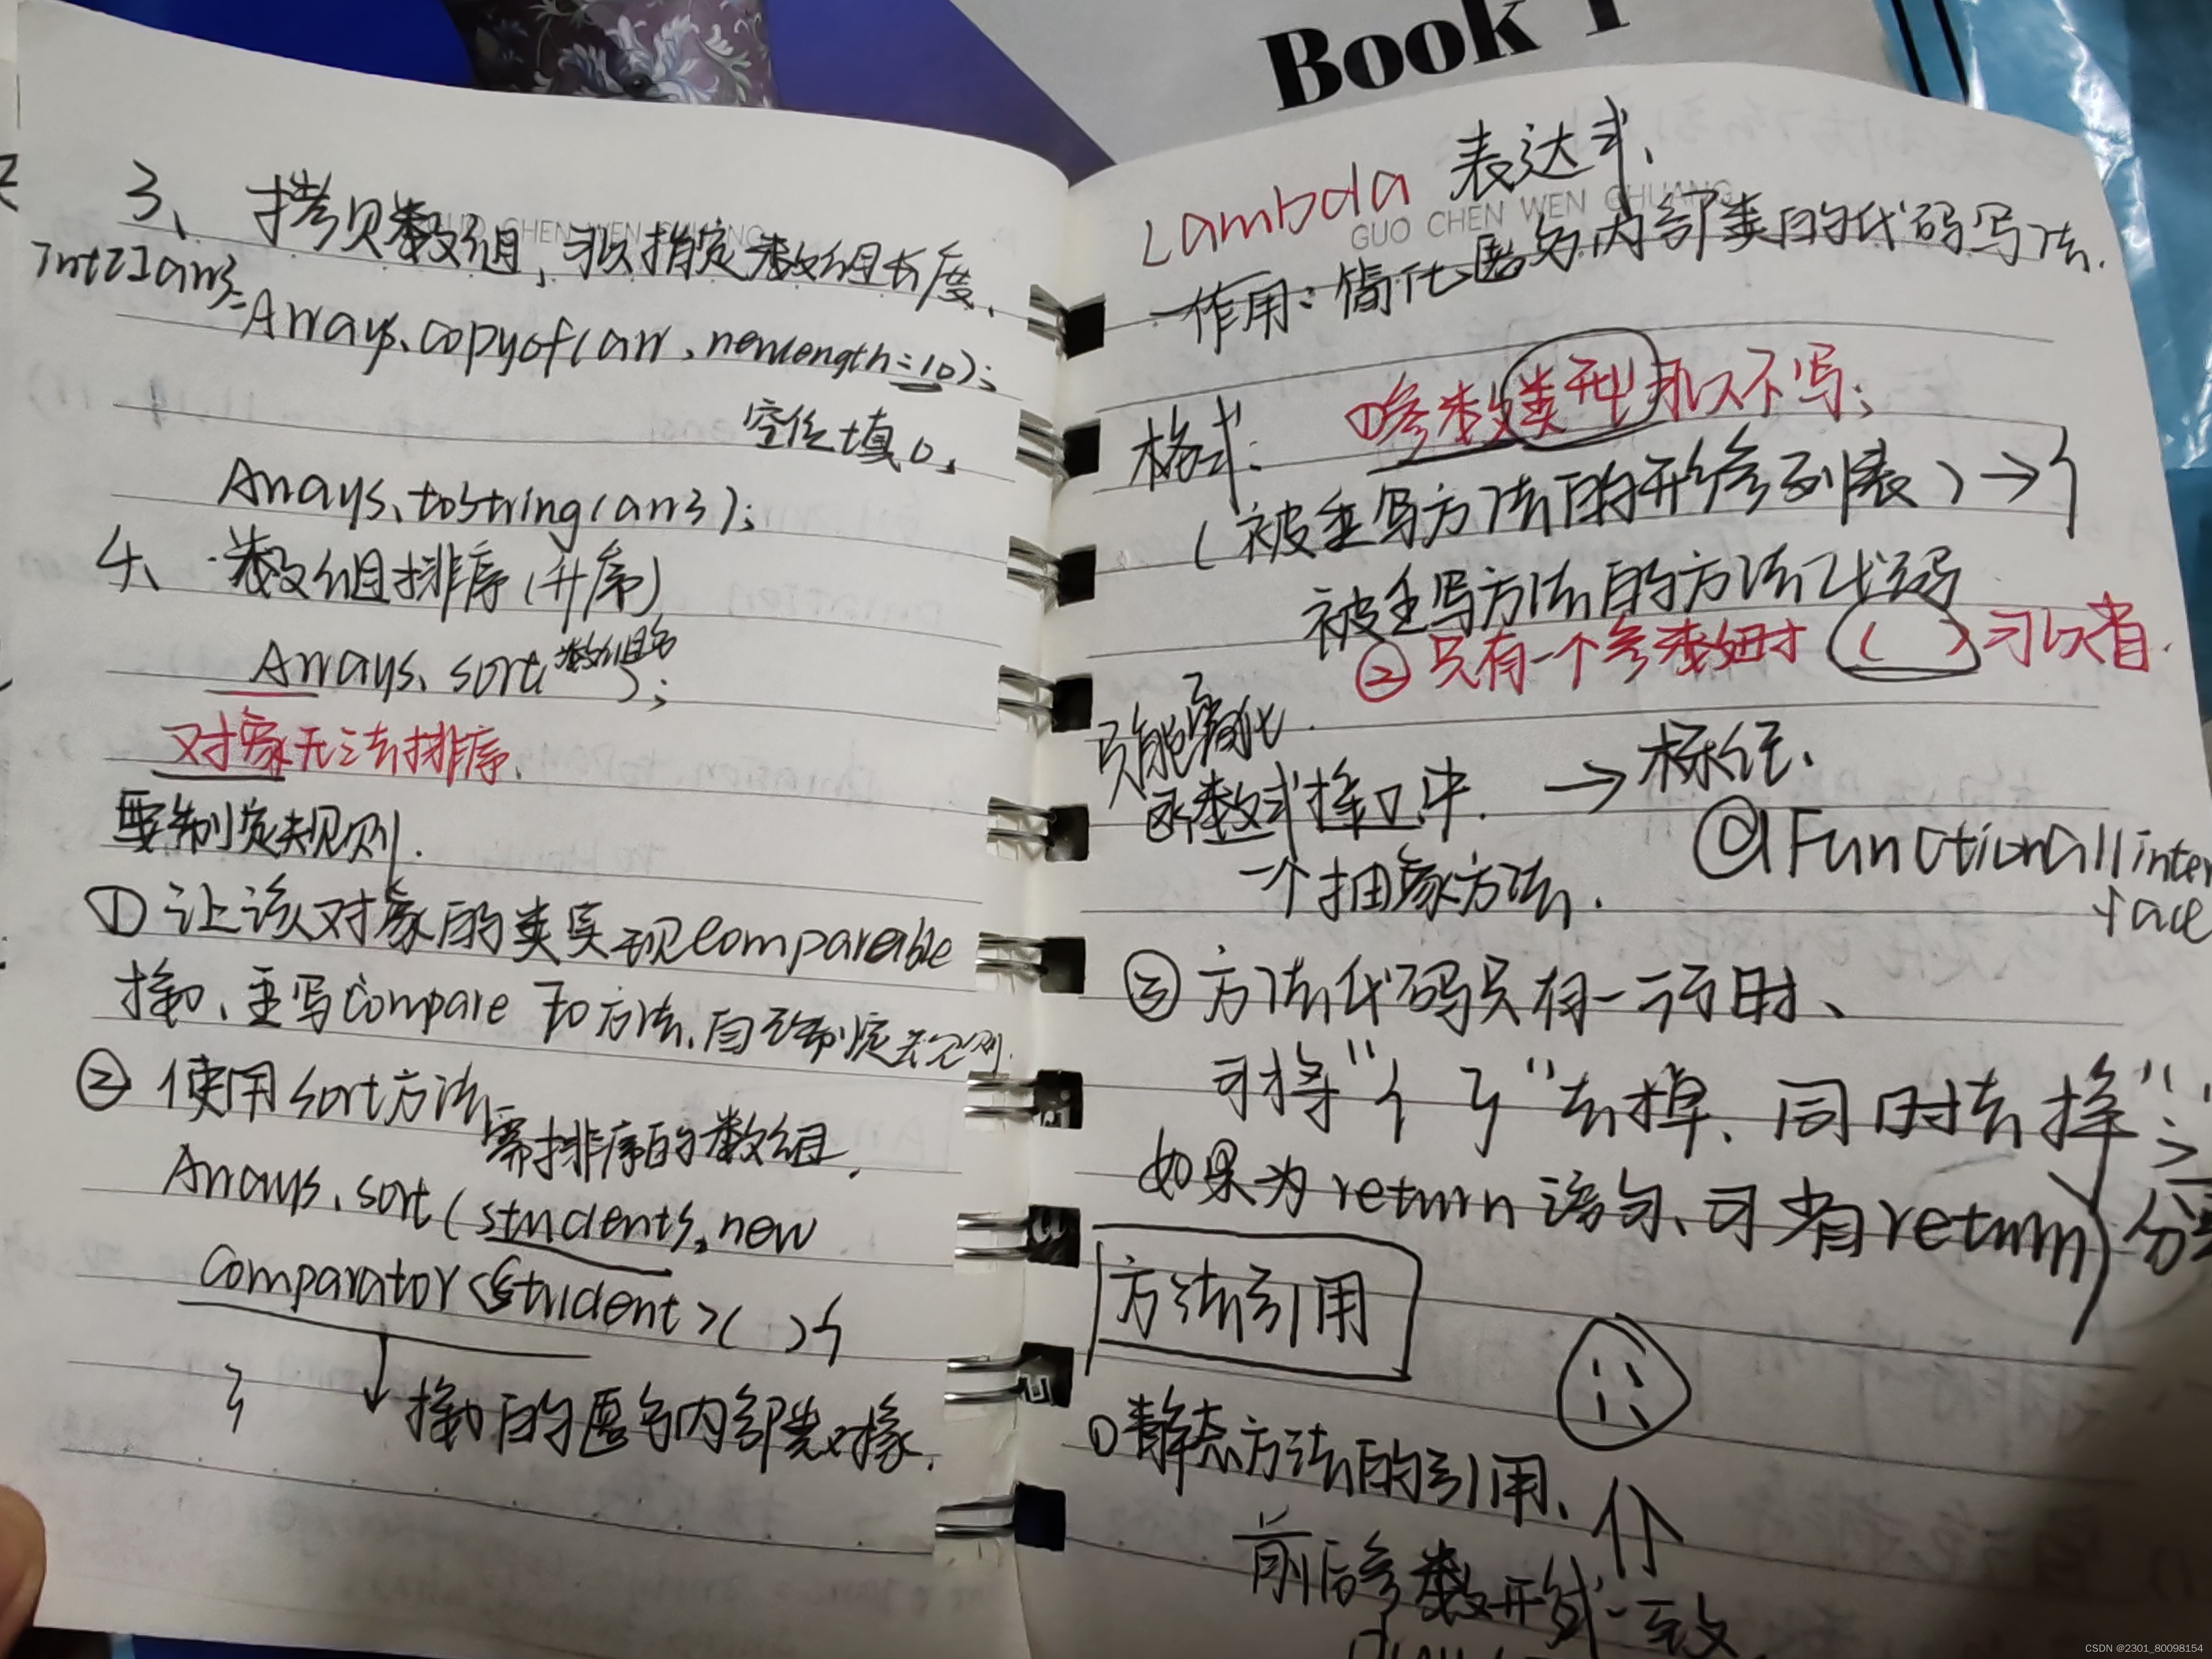 Book 1
GUO CHEN WEN CHUANG
3、拷贝数组，可以指定数组长度、
int[] arr3=
Arrays.copyof(arr, newlength=10);
空位填0。
Arrays.toString(arr3);
4、数组排序(升序)
Arrays.sort(数组名);
对象无法排序、
要制定规则.
① 让该对象的类实现Comparable
接口、重写Compare To方法、自己制定规则.
② 使用sort方法
需排序的数组.
Arrays.sort(students, new
Comparator<Student>( ){
}
接口的匿名内部类对象.
Lambda 表达式、
GUO CHEN WEN CHUANG
作用：简化匿名内部类的代码写法.
①参数类型可以不写；
格式：
(被重写方法的形参列表)→{
被重写方法的方法代码
②只有一个参数时 ( ) 可以省.
只能简化
函数式接口中. → 标注.
@Functionallinter
face
一个抽象方法.
③ 方法代码只有一行时、
可将“{ }”去掉、同时去掉“;”
如果为return语句、可省return 分
方法引用
①静态方法的引用、
前后参数形式一致
CSDN @2301_80098154